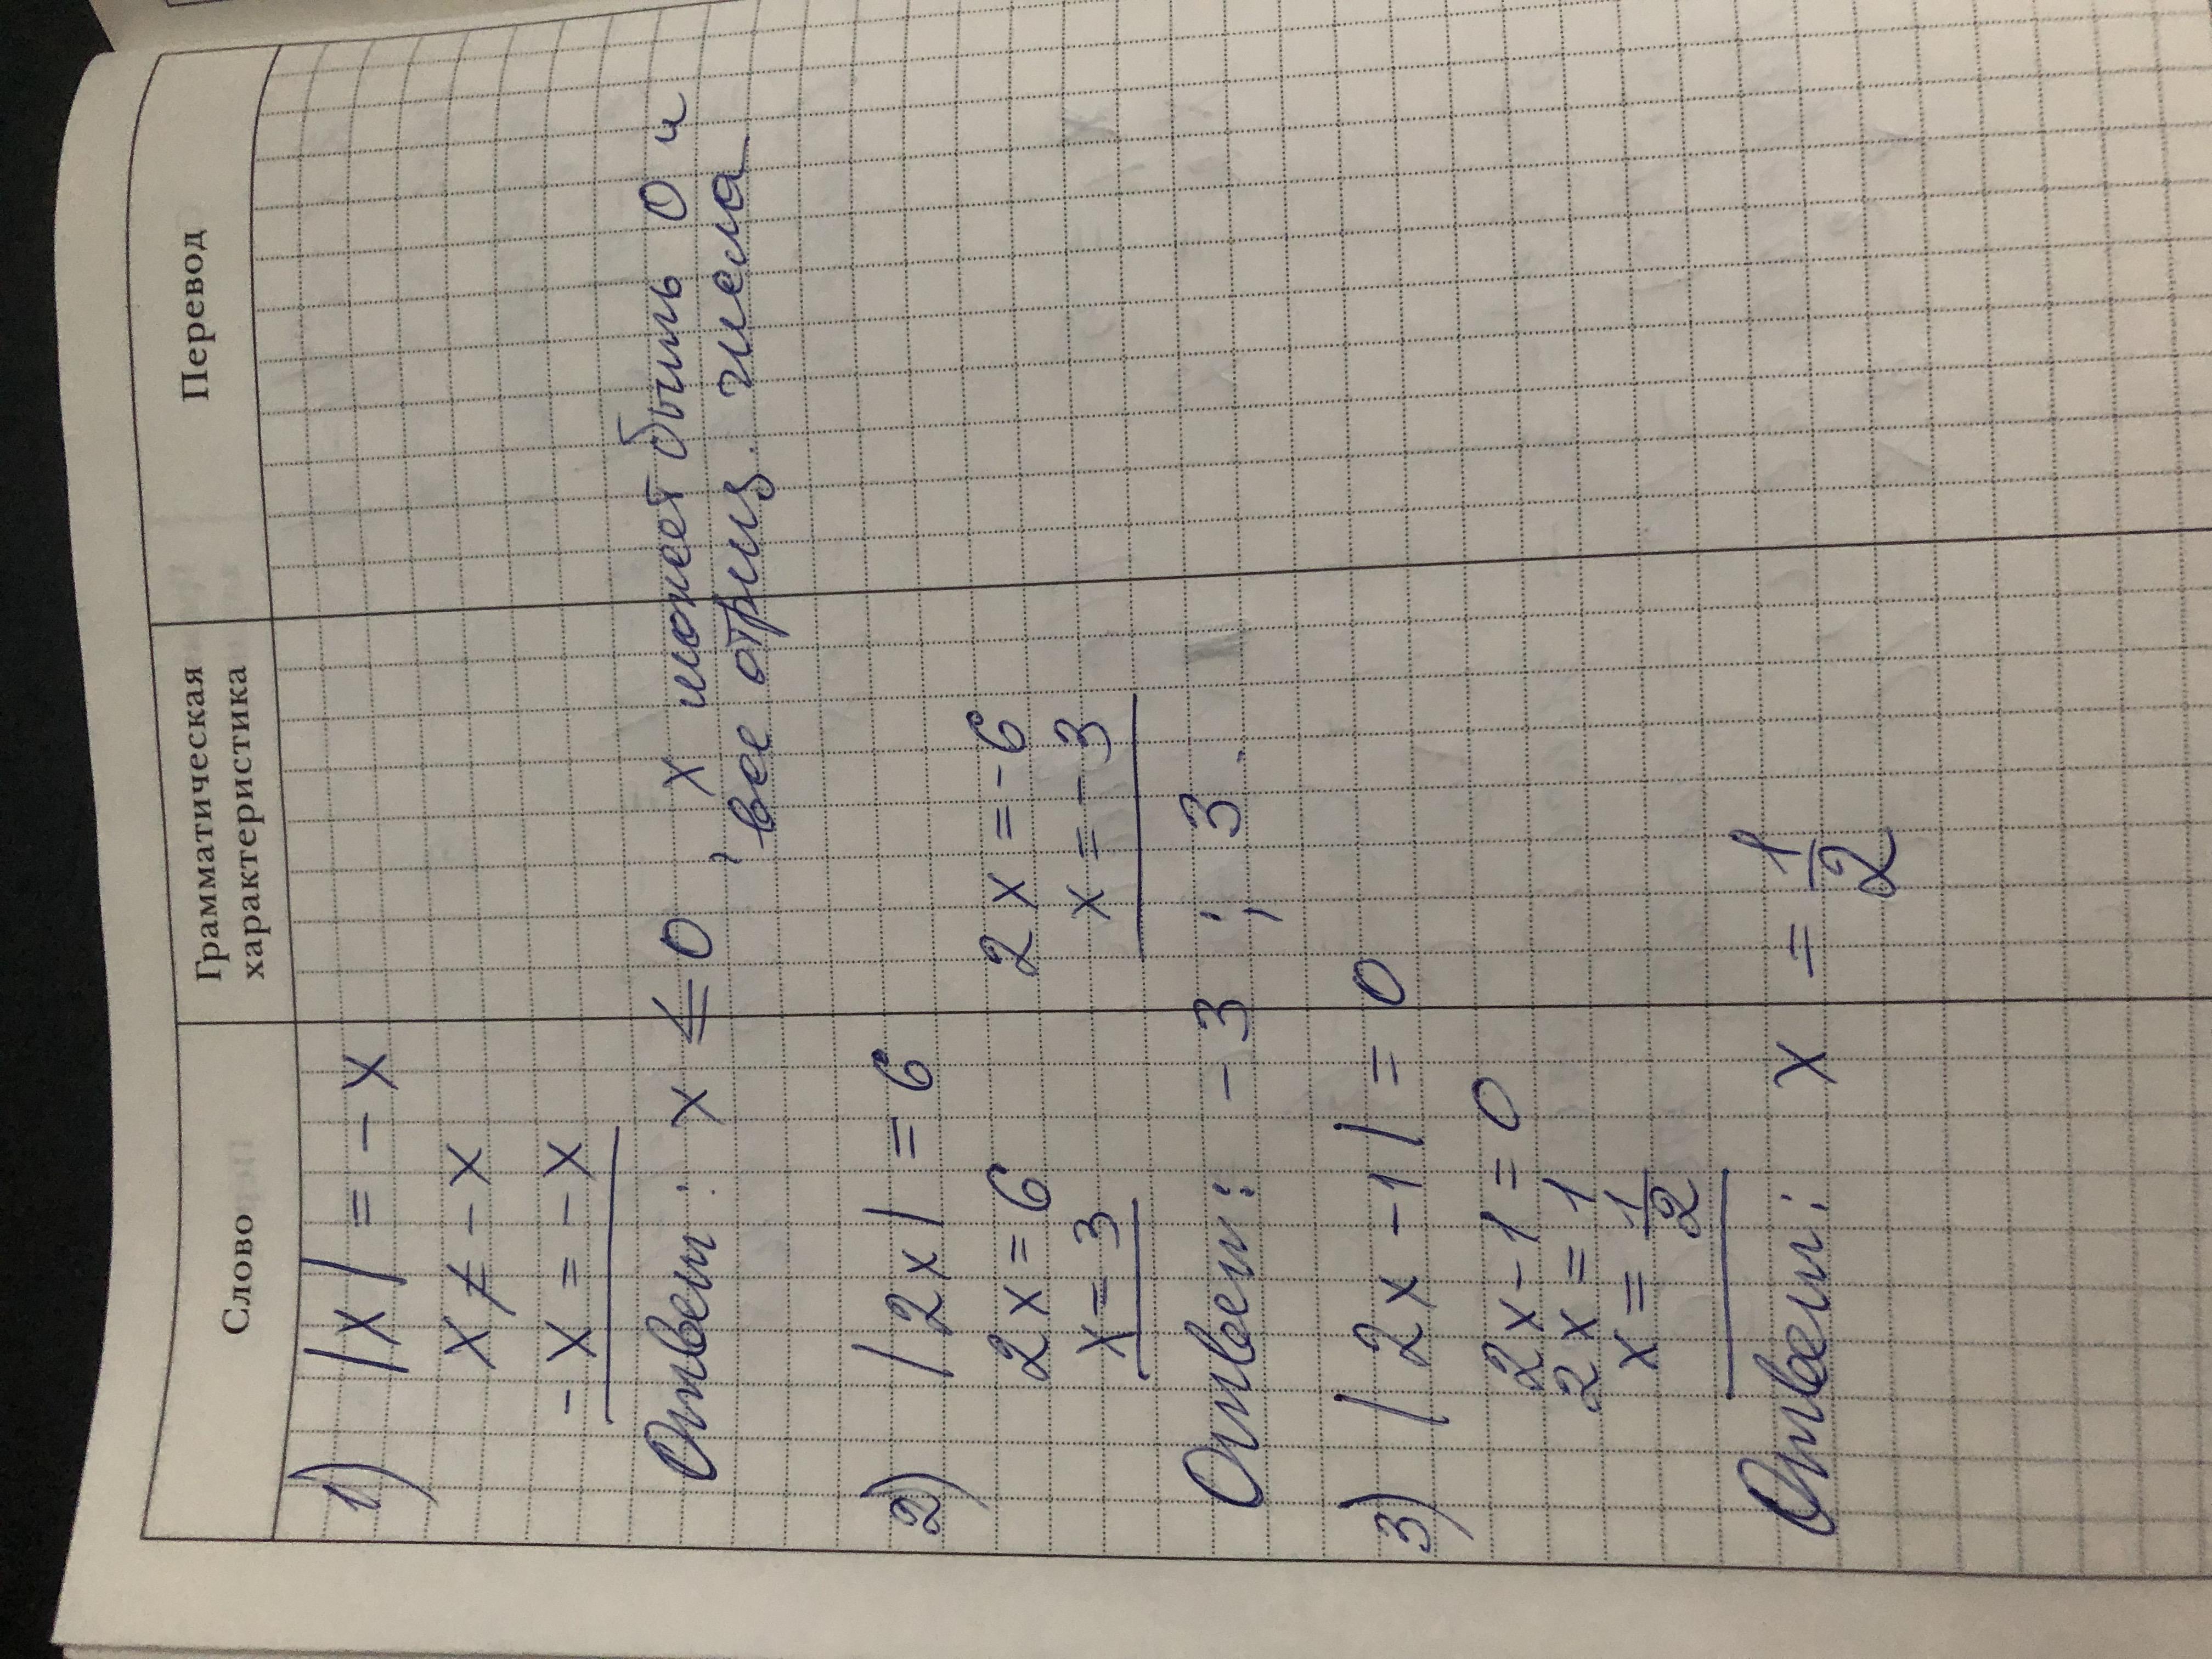 Слово Грамматическая характеристика Перевод
1) |x| = -x
x ≠ -x
-x = -x
Ответ: x ≤ 0, x может быть 0 и
все отриц. числа
2) |2x| = 6
2x = 6 2x = -6
x = 3 x = -3
Ответ: -3 ; 3.
3) |2x - 1| = 0
2x - 1 = 0
2x = 1
x = 1/2
Ответ: x = 1/2